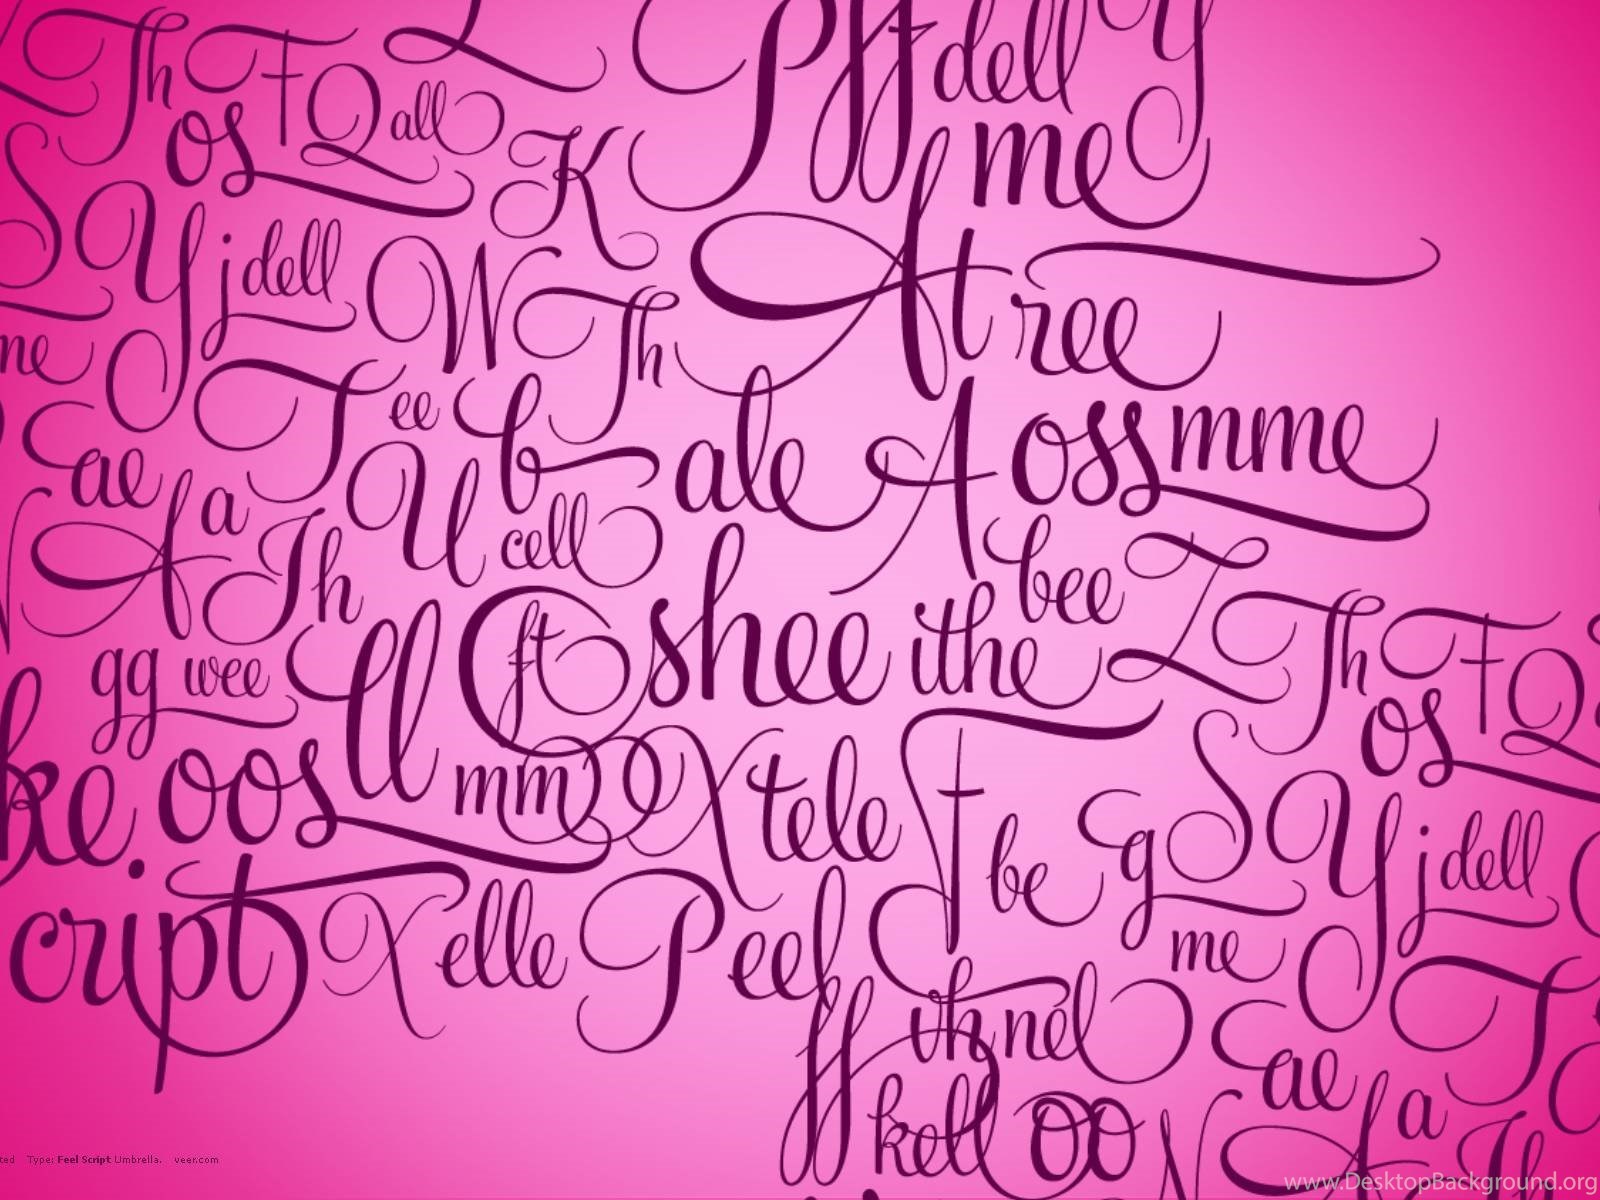 Th F Q all L P ff dell Y
os K me
S Y j dell W Th A t ree
me T ee b ale A oss mme
E ae A a Th U cell bee Z
gg wee ll ft shee ithe Th F Q
ke oos mm X tele F be g S os
cript X elle P eel Y j dell
me
ff vh nel E ae T
kell oo N A a Th
ted Type: Feel Script Umbrella. veer.com
www.DesktopBackground.org